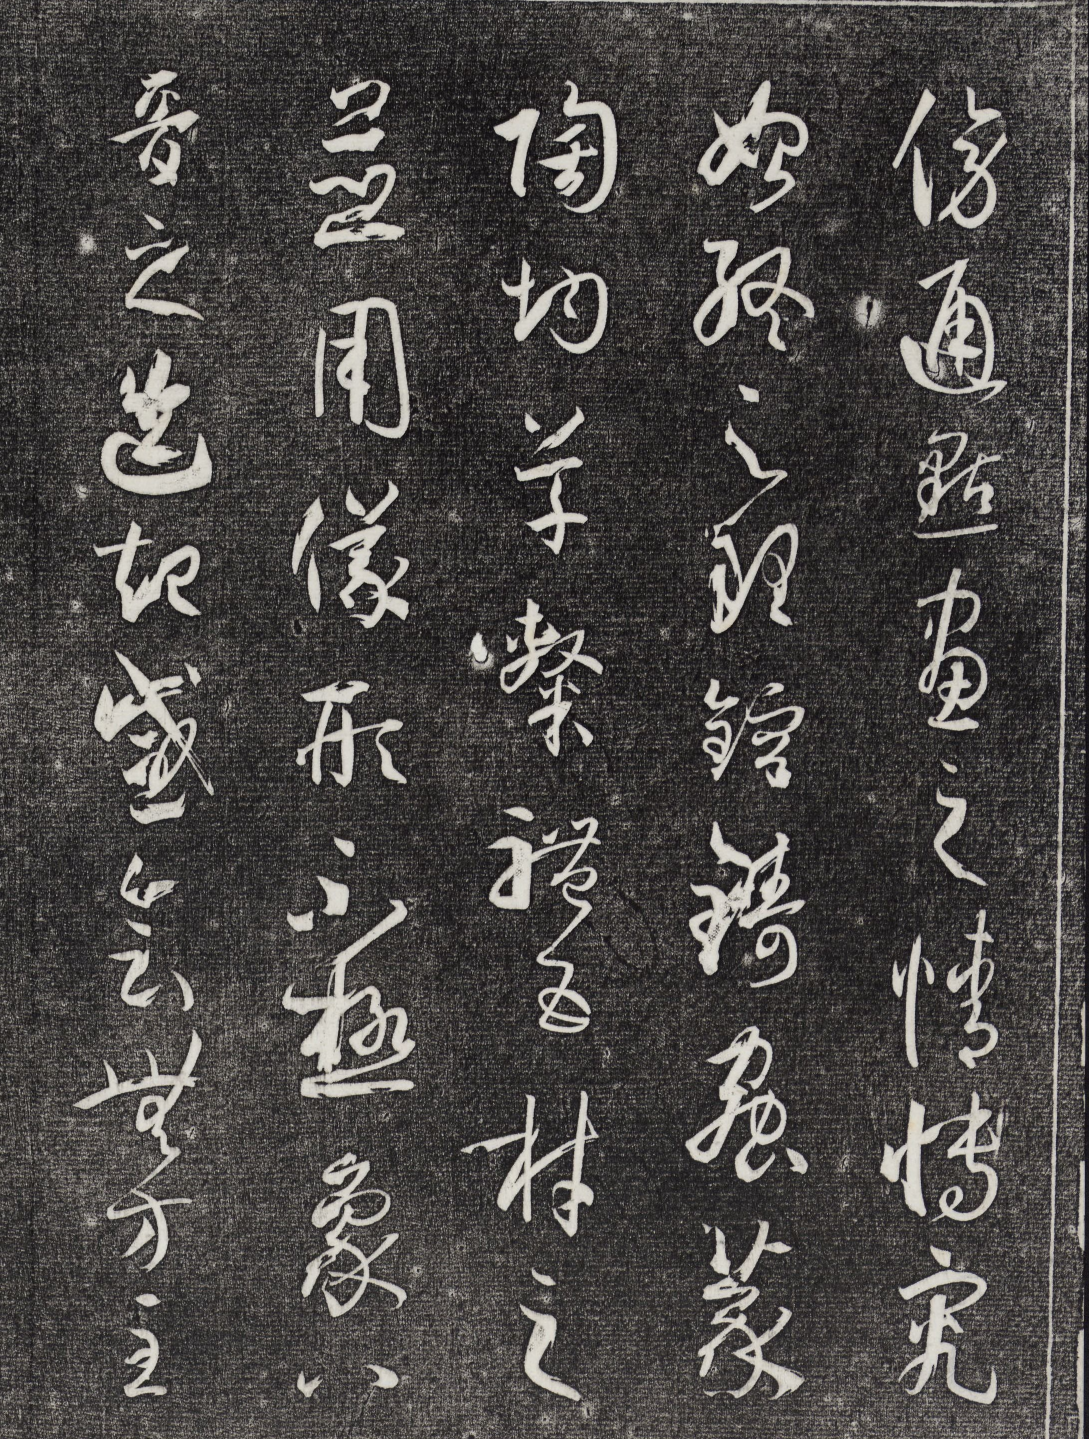 傍通點畫之情博究
始終之理鎔鑄蟲篆
陶均草隸體五材之
並用儀形不極象八
音之迭起感會無方至